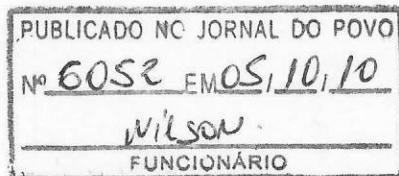 PUBLICADO NO JORNAL DO POVO
Nº 6052 EM 05, 10, 10
Nilson.
FUNCIONÁRIO